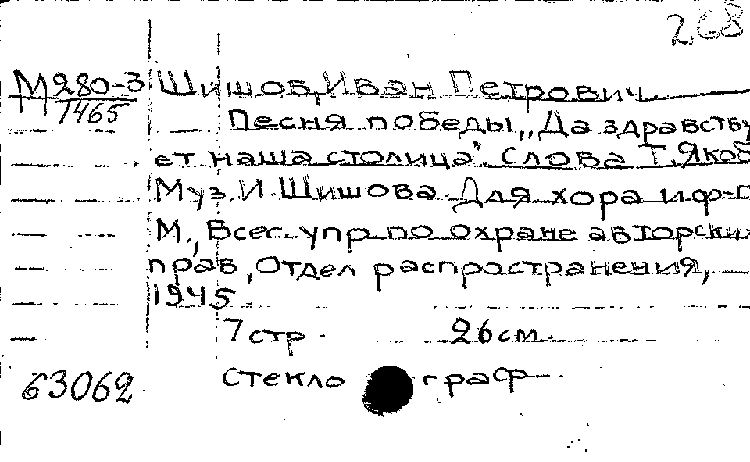 268
М280-3 Шишов, Иван Петрович
1465
Песня победы „Да здравству
ет наша столица". Слова Т. Якоб
Муз. И. Шишова. Для хора и ф-п
М., Всес. упр. по охране авторских
прав, Отдел распространения,
1945
7 стр. 26 см.
63062 стекло граф